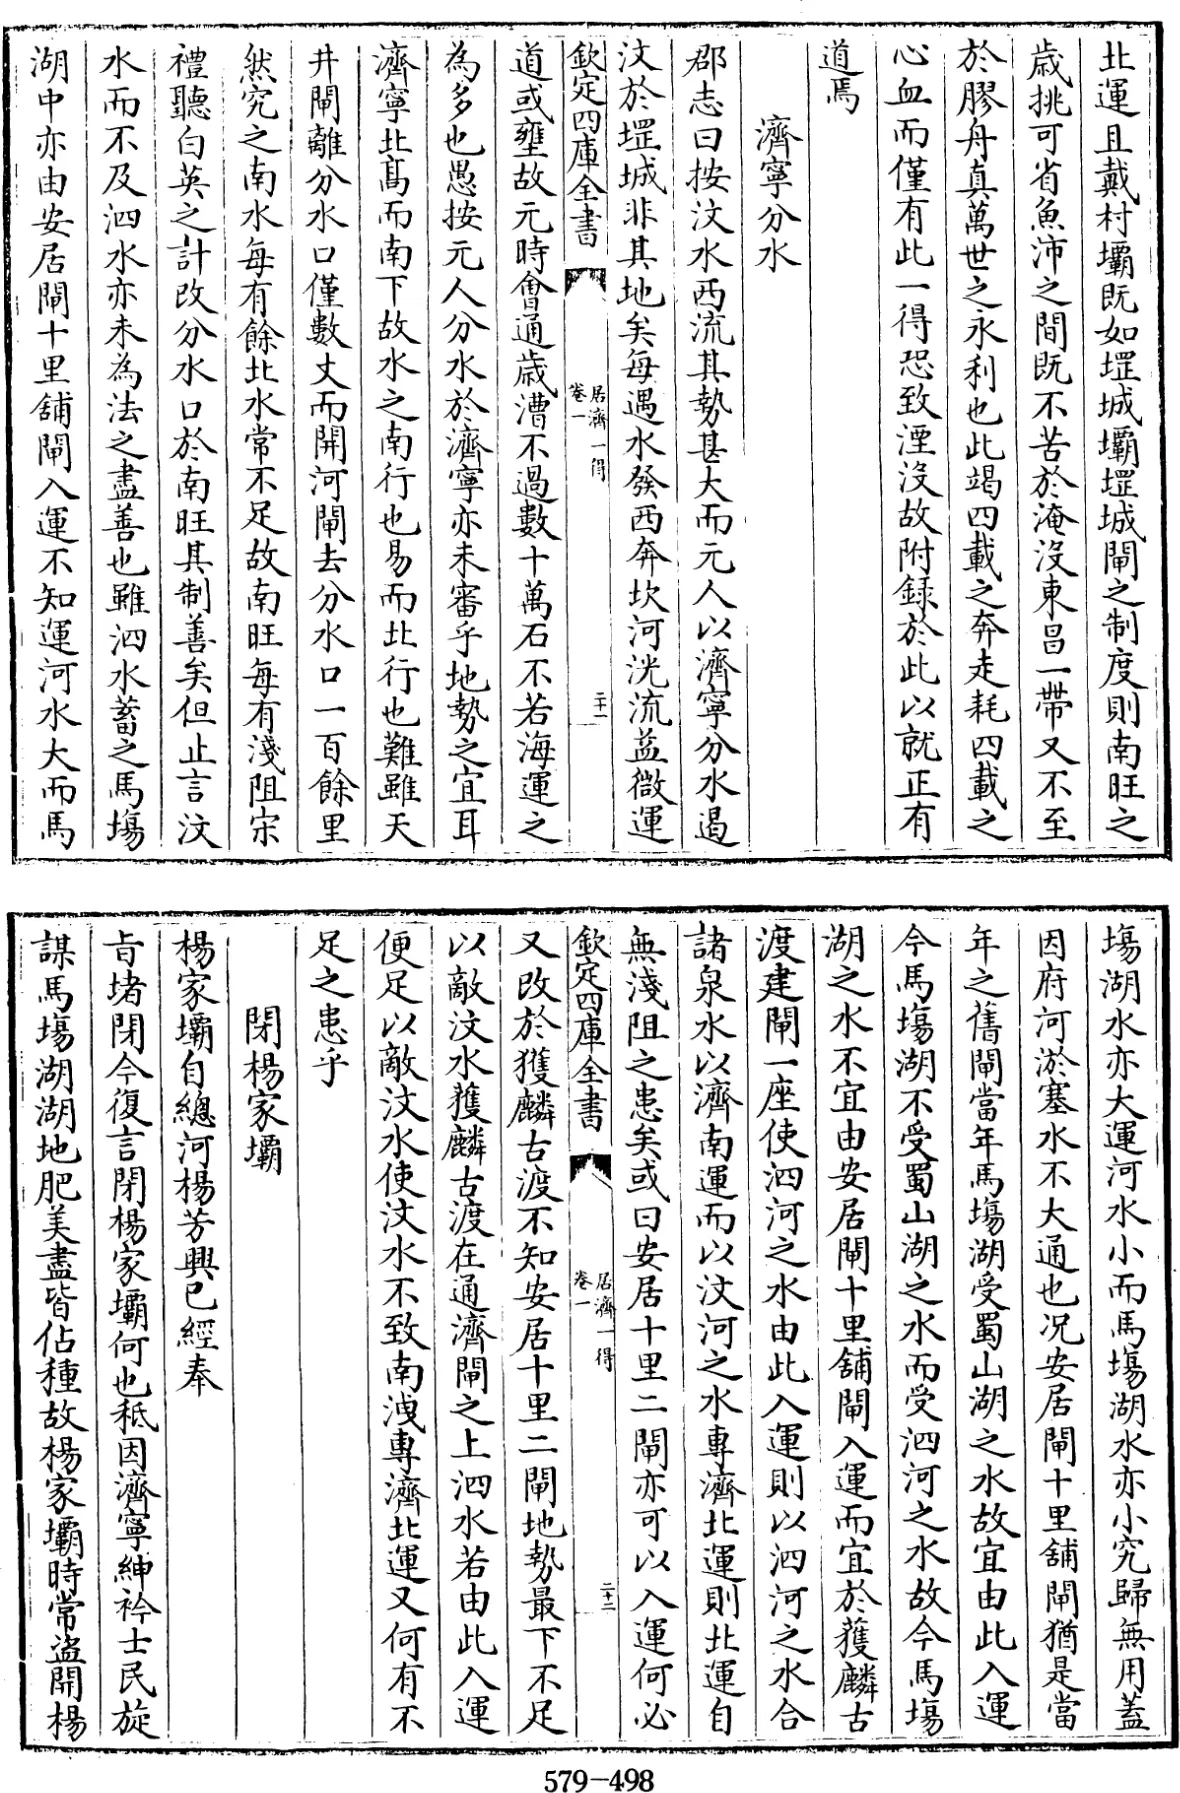 北運且戴村壩既如堽城壩堽城閘之制度則南旺之
歳挑可省魚沛之間既不苦於淹沒東昌一帶又不至
於膠舟真萬世之永利也此竭四載之奔走耗四載之
心血而僅有此一得恐致湮沒故附錄於此以就正有
道焉
濟寧分水
郡志曰按汶水西流其勢甚大而元人以濟寧分水遏
汶於堽城非其地矣每遇水發西奔坎河洸流益微運
欽定四庫全書
居濟一得
卷一
二十一
道或壅故元時會通歳漕不過數十萬石不若海運之
為多也愚按元人分水於濟寧亦未審乎地勢之宜耳
濟寧北髙而南下故水之南行也易而北行也難雖天
井閘離分水口僅數丈而開河閘去分水口一百餘里
然究之南水每有餘北水常不足故南旺每有淺阻宋
禮聽白英之計改分水口於南旺其制善矣但止言汶
水而不及泗水亦未為法之盡善也雖泗水蓄之馬塲
湖中亦由安居閘十里舖閘入運不知運河水大而馬
塲湖水亦大運河水小而馬塲湖水亦小究歸無用蓋
因府河淤塞水不大通也况安居閘十里舖閘猶是當
年之舊閘當年馬塲湖受蜀山湖之水故宜由此入運
今馬塲湖不受蜀山湖之水而受泗河之水故今馬塲
湖之水不宜由安居閘十里舖閘入運而宜於獲麟古
渡建閘一座使泗河之水由此入運則以泗河之水合
諸泉水以濟南運而以汶河之水專濟北運則北運自
無淺阻之患矣或曰安居十里二閘亦可以入運何必
欽定四庫全書
居濟一得
卷一
二十二
又改於獲麟古渡不知安居十里二閘地勢最下不足
以敵汶水獲麟古渡在通濟閘之上泗水若由此入運
便足以敵汶水使汶水不致南洩專濟北運又何有不
足之患乎
閉楊家壩
楊家壩自總河楊芳興已經奉
旨堵閉今復言閉楊家壩何也秪因濟寧紳衿士民旋
謀馬塲湖湖地肥美盡皆佔種故楊家壩時常盜開楊
579-498